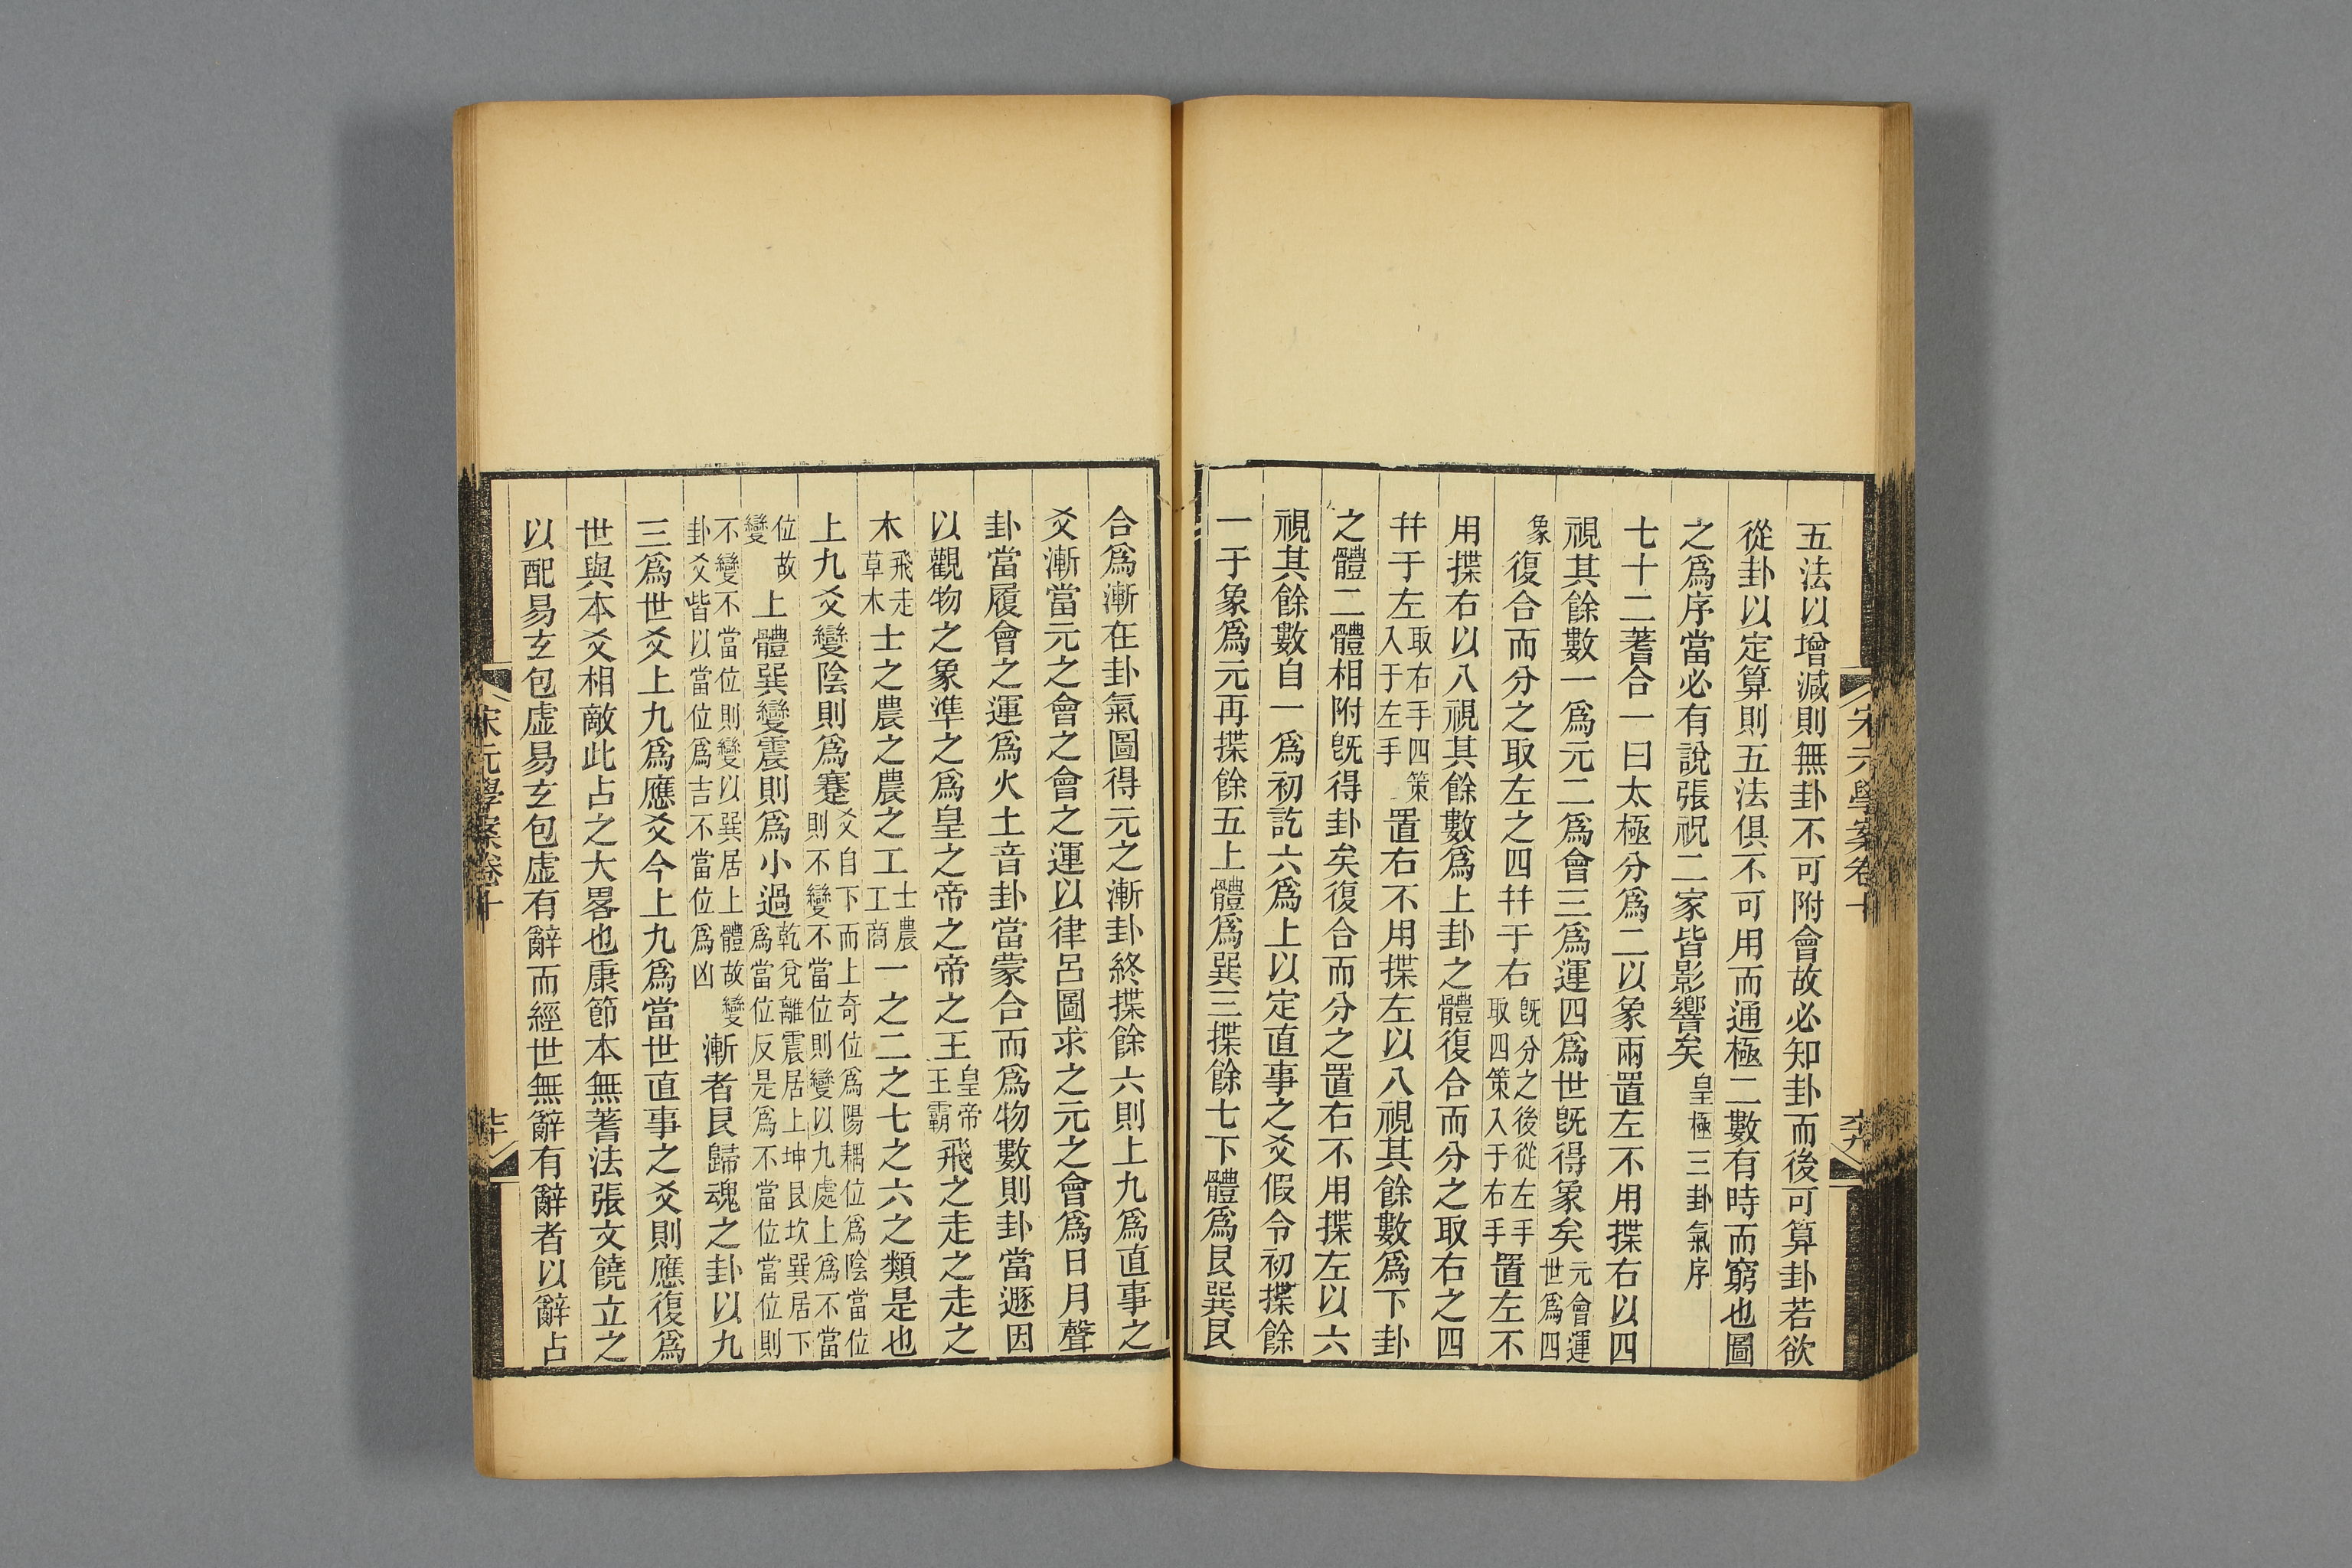 五法以增減則無卦不可附會故必知卦而後可算卦若欲
從卦以定算則五法俱不可用而通極二數有時而窮也圖
之爲序當必有說張祝二家皆影響矣皇極三卦氣序
七十二蓍合一曰太極分爲二以象兩置左不用揲右以四
視其餘數一爲元二爲會三爲運四爲世旣得象矣元會運世爲四
象復合而分之取左之四幷于右旣分之後從左手取四策入于右手置左不
用揲右以八視其餘數爲上卦之體復合而分之取右之四
幷于左取右手四策入于左手置右不用揲左以八視其餘數爲下卦
之體二體相附旣得卦矣復合而分之置右不用揲左以六
視其餘數自一爲初訖六爲上以定直事之爻假令初揲餘
一于象爲元再揲餘五上體爲巽三揲餘七下體爲艮巽艮
宋元學案卷十
合爲漸在卦氣圖得元之漸卦終揲餘六則上九爲直事之
爻漸當元之會之會之運以律呂圖求之元之會爲日月聲
卦當履會之運爲火土音卦當蒙合而爲物數則卦當遯因
以觀物之象準之爲皇之帝之帝之王皇帝王霸飛之走之走之
木飛走草木士之農之農之工士農工商一之二之七之六之類是也
上九爻變陰則爲蹇爻自下而上奇位爲陽耦位爲陰當位則不變不當位則變以九處上爲不當
位故變上體巽變震則爲小過乾兌離震居上坤艮坎巽居下爲當位反是爲不當位當位則
不變不當位則變以巽居上體故變卦爻皆以當位爲吉不當位爲凶漸者艮歸魂之卦以九
三爲世爻上九爲應爻今上九爲當世直事之爻則應復爲
世與本爻相敵此占之大畧也康節本無蓍法張文饒立之
以配易玄包虛易玄包虛有辭而經世無辭有辭者以辭占
宋元學案卷十